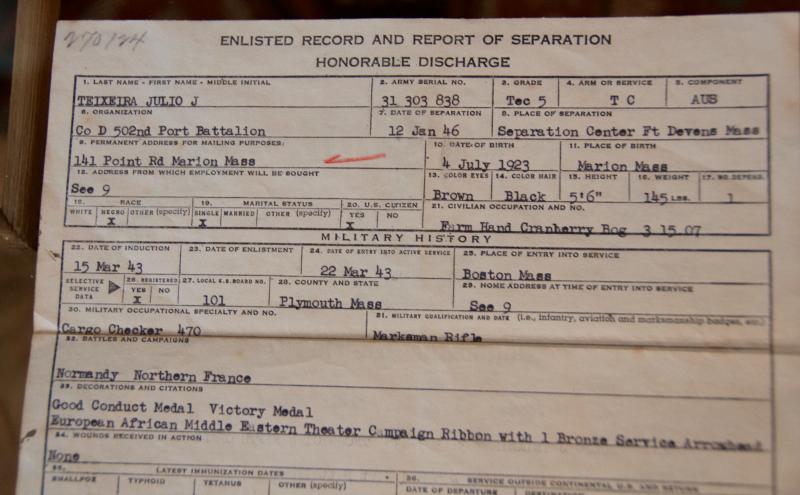 270124
ENLISTED RECORD AND REPORT OF SEPARATION
HONORABLE DISCHARGE
1. LAST NAME - FIRST NAME - MIDDLE INITIAL 2. ARMY SERIAL NO. 3. GRADE 4. ARM OR SERVICE 5. COMPONENT
TEIXEIRA JULIO J 31 303 838 Tec 5 T C AUS
6. ORGANIZATION 7. DATE OF SEPARATION 8. PLACE OF SEPARATION
Co D 502nd Port Battalion 12 Jan 46 Separation Center Ft Devens Mass
9. PERMANENT ADDRESS FOR MAILING PURPOSES: 10. DATE OF BIRTH 11. PLACE OF BIRTH
141 Point Rd Marion Mass 4 July 1923 Marion Mass
12. ADDRESS FROM WHICH EMPLOYMENT WILL BE SOUGHT 13. COLOR EYES 14. COLOR HAIR 15. HEIGHT 16. WEIGHT 17. NO. DEPEND.
See 9 Brown Black 5'6" 145 LBS. 1
18. RACE 19. MARITAL STATUS 20. U.S. CITIZEN 21. CIVILIAN OCCUPATION AND NO.
WHITE NEGRO OTHER (specify) SINGLE MARRIED OTHER (specify) YES NO
X X X Farm Hand Cranberry Bog 3 15 07
MILITARY HISTORY
22. DATE OF INDUCTION 23. DATE OF ENLISTMENT 24. DATE OF ENTRY INTO ACTIVE SERVICE 25. PLACE OF ENTRY INTO SERVICE
15 Mar 43 22 Mar 43 Boston Mass
SELECTIVE SERVICE DATA 26. REGISTERED YES NO 27. LOCAL S.S. BOARD NO. 28. COUNTY AND STATE 29. HOME ADDRESS AT TIME OF ENTRY INTO SERVICE
X 101 Plymouth Mass See 9
30. MILITARY OCCUPATIONAL SPECIALTY AND NO. 31. MILITARY QUALIFICATION AND DATE (i.e., infantry, aviation and marksmanship badges, etc.)
Cargo Checker 470 Marksman Rifle
32. BATTLES AND CAMPAIGNS
Normandy Northern France
33. DECORATIONS AND CITATIONS
Good Conduct Medal Victory Medal
European African Middle Eastern Theater Campaign Ribbon with 1 Bronze Service Arrowhead
34. WOUNDS RECEIVED IN ACTION
None
35. LATEST IMMUNIZATION DATES 36. SERVICE OUTSIDE CONTINENTAL U.S. AND RETURN
SMALLPOX TYPHOID TETANUS OTHER (specify) DATE OF DEPARTURE DESTINATION